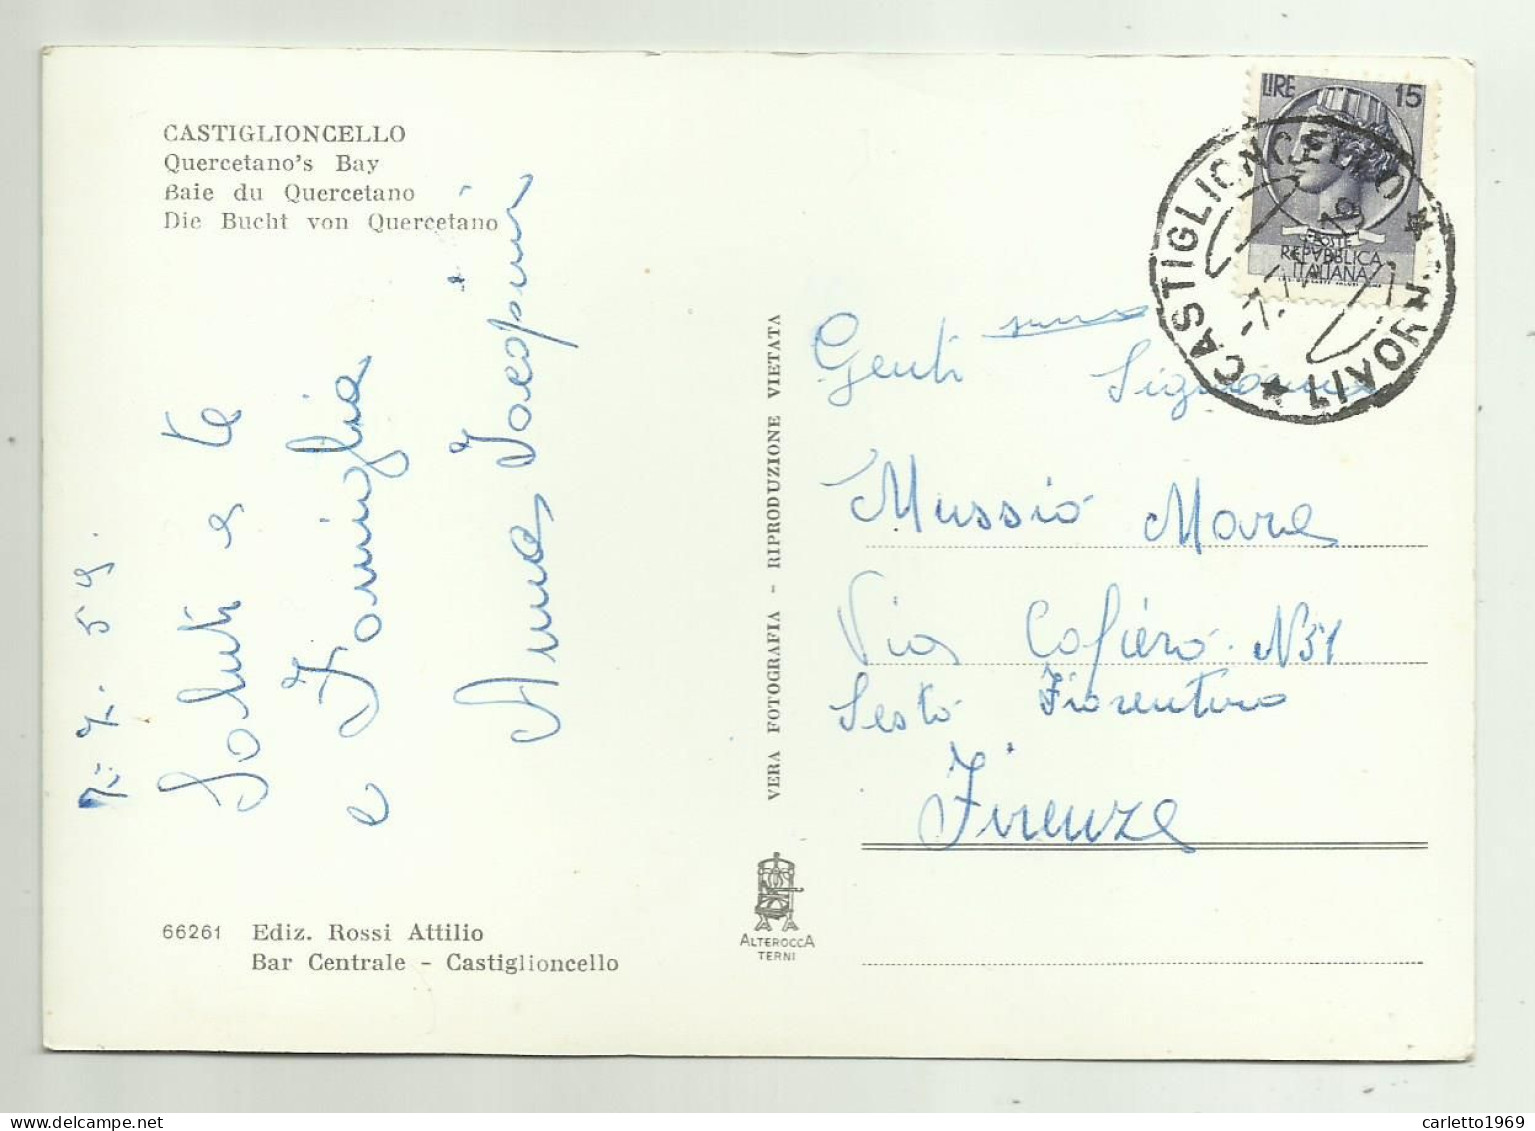 CASTIGLIONCELLO
Quercetano's Bay
Baie du Quercetano
Die Bucht von Quercetano
7. 7. 59.
Saluti a te
e Famiglia
Anna Iacopini
66261 Ediz. Rossi Attilio
Bar Centrale - Castiglioncello
VERA FOTOGRAFIA - RIPRODUZIONE VIETATA
ALTEROCCA
TERNI
LIRE 15
POSTE
REPVBBLICA
ITALIANA
CASTIGLIONCELLO
LIVORNO
Gentissima Signorina
Mussio Mara
Via Cafiero N 51
Sesto Fiorentino
Firenze
carletto1969